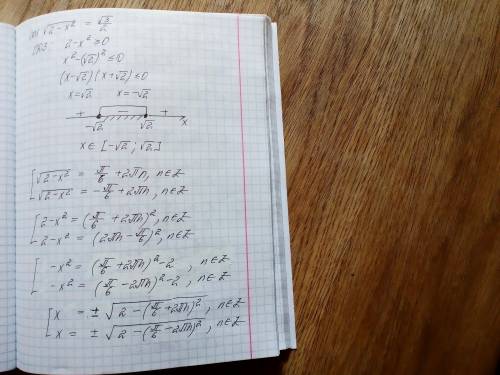 cos √(2-x²) = √3/2
ОДЗ: 2-x² ≥ 0
x² - (√2)² ≤ 0
(x-√2)(x+√2) ≤ 0
x=√2 x=-√2
+ - +
-√2 √2 x
x ∈ [-√2; √2]
[ √(2-x²) = π/6 + 2πn, n∈Z
√(2-x²) = -π/6 + 2πn, n∈Z
[ 2-x² = (π/6 + 2πn)², n∈Z
2-x² = (2πn - π/6)², n∈Z
[ -x² = (π/6 + 2πn)² - 2, n∈Z
-x² = (π/6 - 2πn)² - 2, n∈Z
[ x = ± √(2 - (π/6 + 2πn)²), n∈Z
x = ± √(2 - (π/6 - 2πn)²), n∈Z